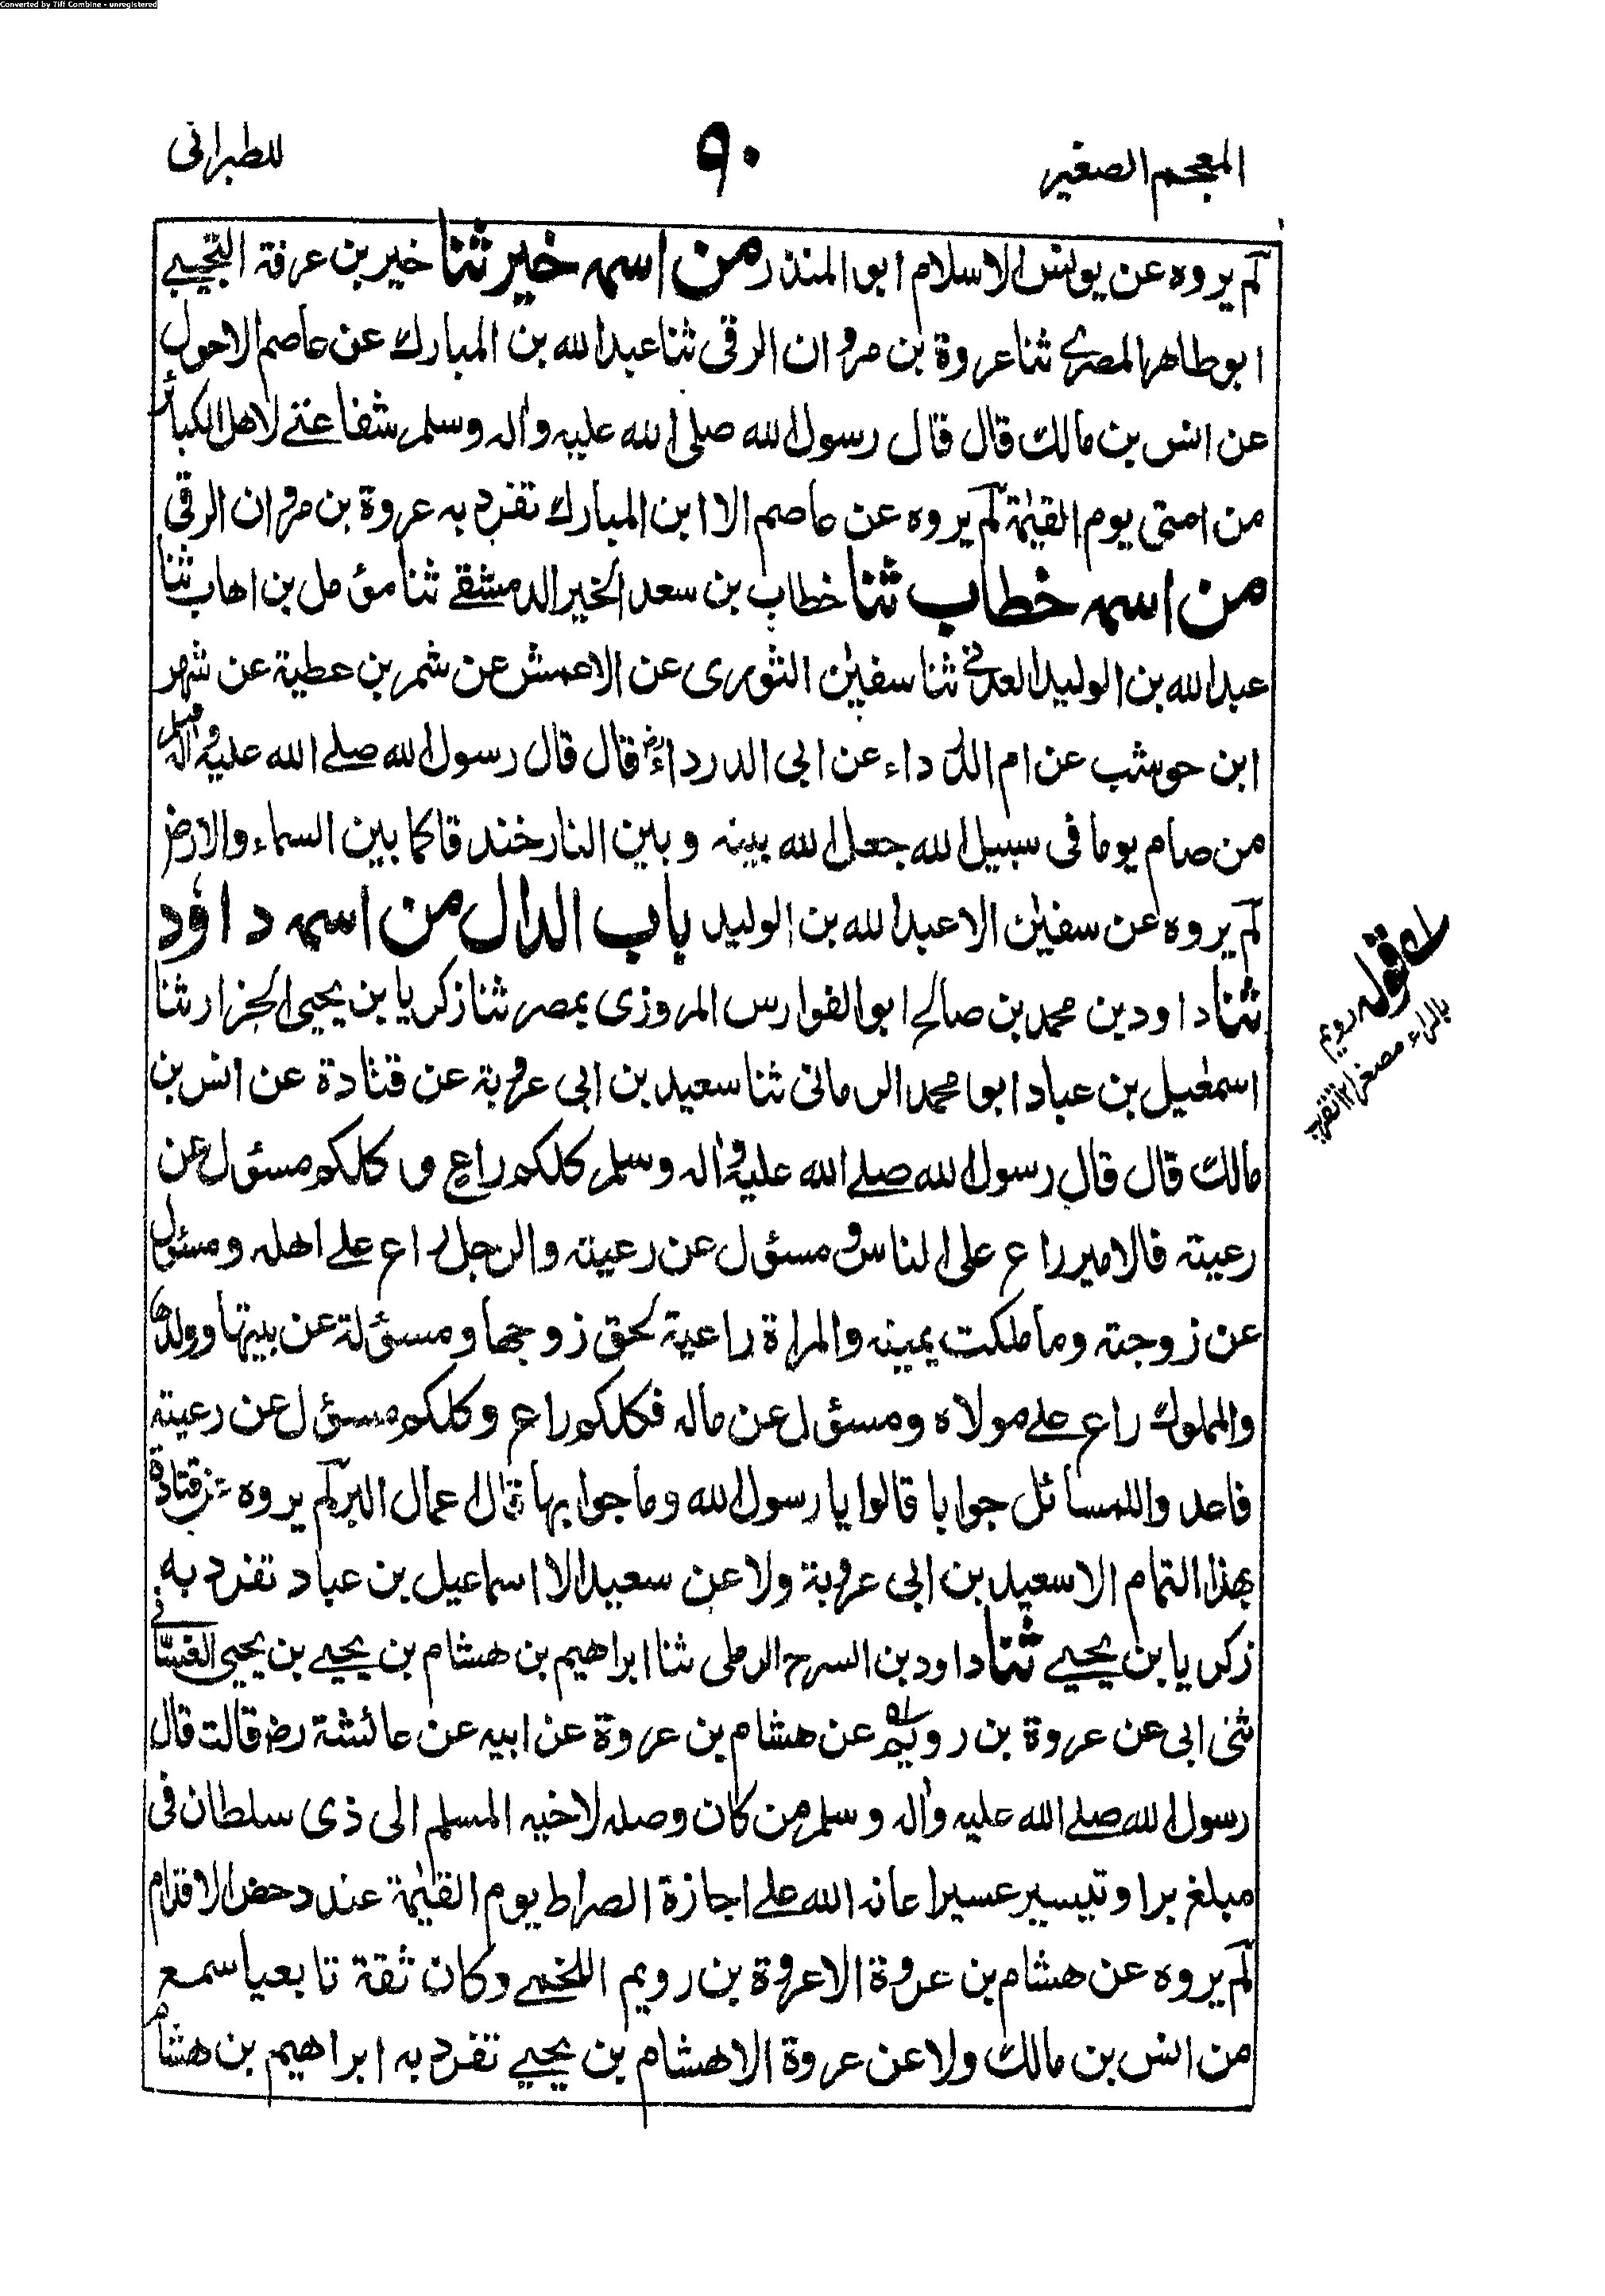 Converted by Tiff Combine - unregistered
المعجم الصغير ٩٠ للطبرانى
لم يروه عن يونس الا سلام ابو المنذر من اسمه خير ثنا خير بن عرفة التجيبے
ابو طاهر المصرے ثنا عروة بن مروان الرقى ثنا عبد الله بن المبارك عن عاصم الاحول
عن انس بن مالك قال قال رسول الله صلى الله عليه واٰله وسلم شفاعتے لاهل الكبائر
من امتى يوم القيٰمة لم يروه عن عاصم الا ابن المبارك تفرد به عروة بن مروان الرقى
من اسمه خطاب ثنا خطاب بن سعد الخير الدمشقے ثنا مؤمل بن اهاب ثنا
عبد الله بن الوليد العدنے ثنا سفيٰن الثورى عن الاعمش عن شمر بن عطية عن شهر
ابن حوشب عن ام الدرداء عن ابى الدرداءرض قال قال رسول الله صلے الله عليه واٰله وسلم
من صام يوما فى سبيل الله جعل الله بينه وبين النار خندقا كما بين السماء والارض
لم يروه عن سفيٰن الا عبد الله بن الوليد باب الدال من اسمه داؤد
ثنا داود بن محمد بن صالح ابو الفوارس المروزى بمصر ثنا زكريا بن يحيى الجزار ثنا
اسمٰعيل بن عباد ابو محمد الرمانى ثنا سعيد بن ابى عروبة عن قتادة عن انس بن
مالك قال قال رسول الله صلے الله عليه واٰله وسلم كلكم راع وكلكم مسؤل عن
رعيته فالامير راع على الناس ومسؤل عن رعيته والرجل راع علے اهله ومسئول
عن زوجته وما ملكت يمينه والمراة راعية لحق زوجها ومسئولة عن بيتها وولدها
والمملوك راع علے مولاه ومسؤل عن ماله فكلكم راع وكلكم مسؤل عن رعيته
فاعدوا للمسائل جوابا قالوا يا رسول الله وما جوابها قال اعمال البر لم يروه عن قتادة
بهذا التمام الا سعيد بن ابى عروبة ولا عن سعيد الا اسماعيل بن عباد تفرد به
زكريا بن يحيے ثنا داود بن السرح الرملى ثنا ابراهيم بن هشام بن يحيے بن يحيى الغسانے
ثنى ابى عن عروة بن رويم عن هشام بن عروة عن ابيه عن عائشة رض قالت قال
رسول الله صلے الله عليه واٰله وسلم من كان وصله لاخيه المسلم الى ذى سلطان فى
مبلغ بر او تيسير عسير اعانه الله علے اجازة الصراط يوم القيٰمة عند دحض الاقدام
لم يروه عن هشام بن عروة الا عروة بن رويم اللخمے وكان ثقة تابعيا سمع
من انس بن مالك ولا عن عروة الا هشام بن يحيے تفرد به ابراهيم بن هشام
قوله رويم
بالراء مصغرا ١٢ تقريب